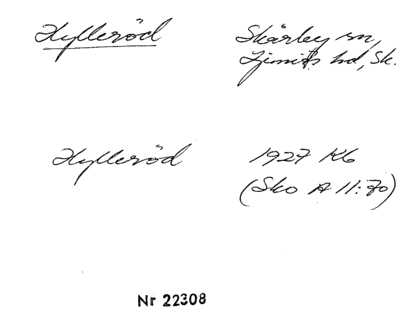 Hylleröd Skärby sn,
Ljunits hd, Sk.
Hylleröd 1927 Kb
(Sko A 11:70)
Nr 22308